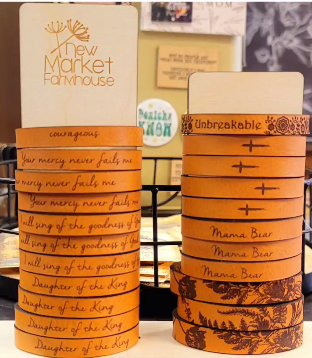 New
Market
Farmhouse
courageous
Your mercy never fails me
mercy never fails me
Your mercy never fails me
I will sing of the goodness of God
will sing of the goodness of God
I will sing of the goodness of
Daughter of the King
Daughter of the King
Daughter of the King
Daughter of the King
Unbreakable
Mama Bear
Mama Bear
Mama Bear
MOM